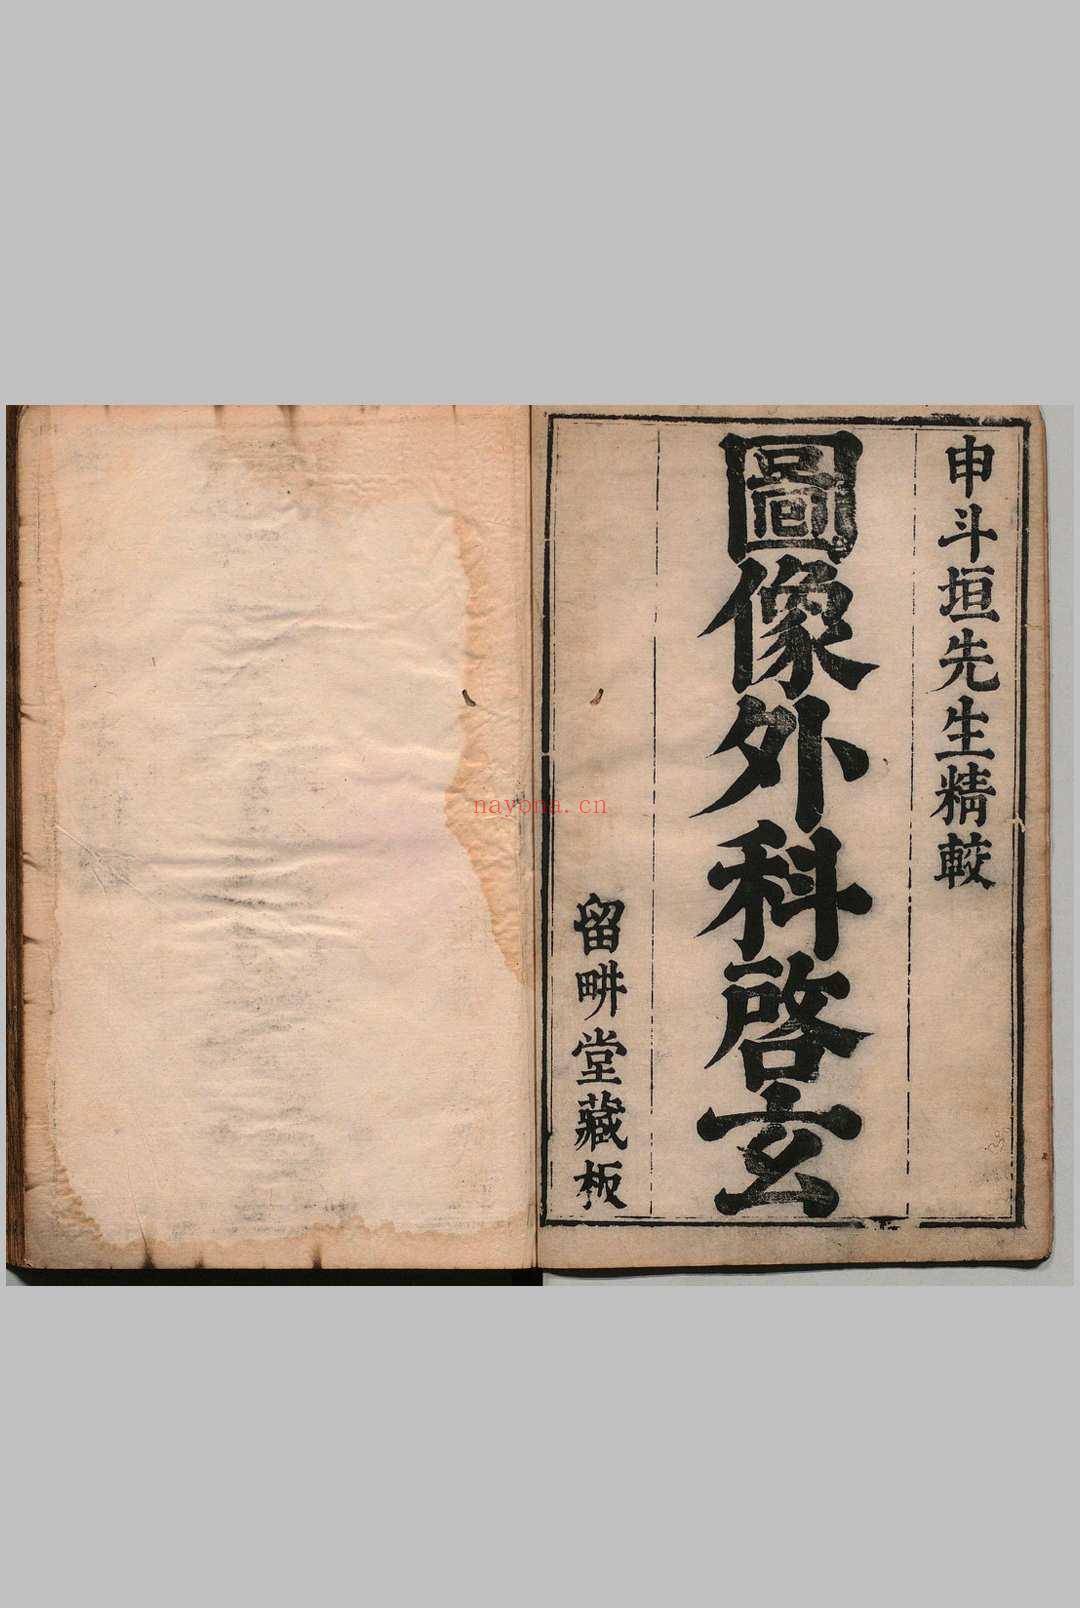 申斗垣先生精較
圖像外科啓玄
留畊堂藏板
nayona.cn